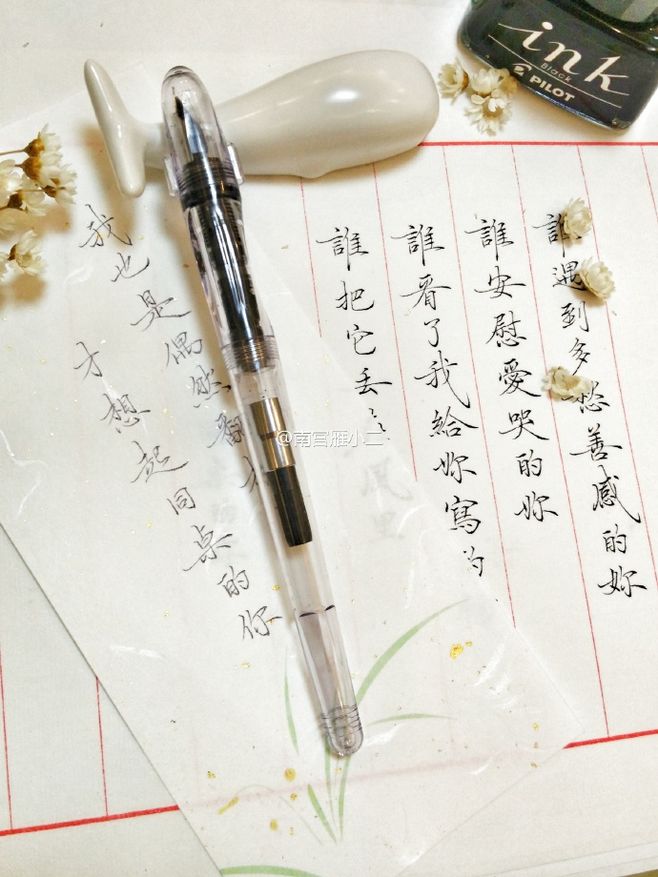 ink
Black
PILOT
誰遇到多愁善感的妳
誰安慰愛哭的妳
誰看了我給妳寫
誰把它丟
我也是偶然翻
才想起同桌的你
@南宫雁小二